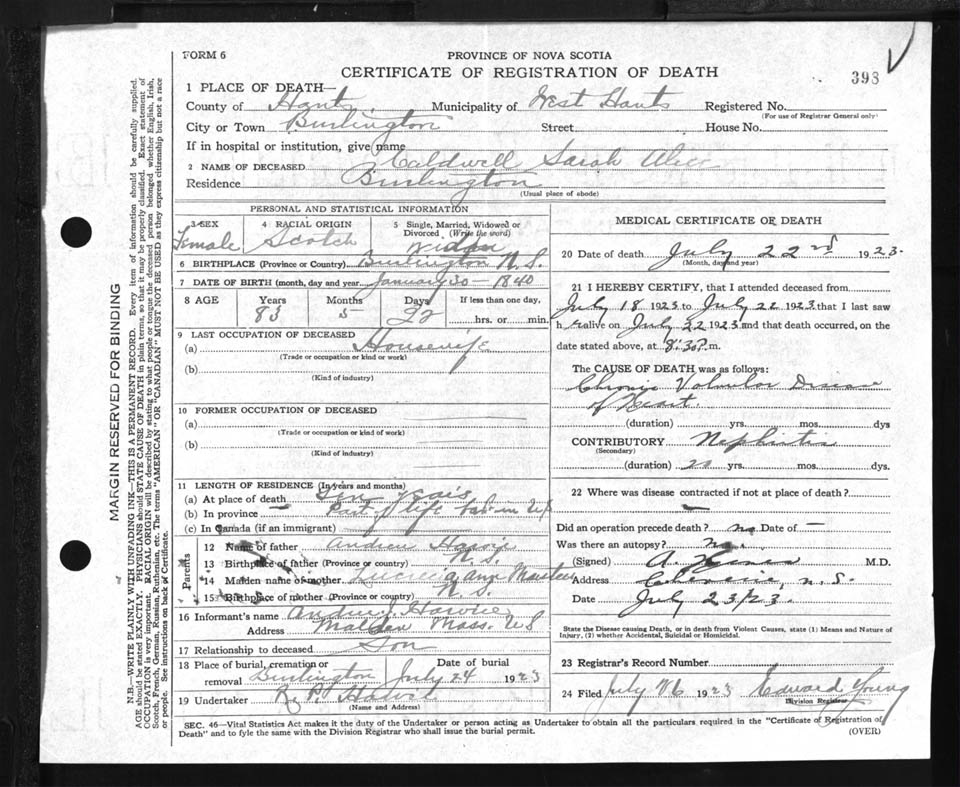 FORM 6
PROVINCE OF NOVA SCOTIA
CERTIFICATE OF REGISTRATION OF DEATH
398
1 PLACE OF DEATH—
County of Hants Municipality of West Hants Registered No.
(For use of Registrar General only)
City or Town Burlington Street House No.
If in hospital or institution, give name
2 NAME OF DECEASED Caldwell Sarah Alice
Residence Burlington
(Usual place of abode)
PERSONAL AND STATISTICAL INFORMATION
3 SEX Female
4 RACIAL ORIGIN Scotch
5 Single, Married, Widowed or Divorced (Write the word) Widow
6 BIRTHPLACE (Province or Country) Burlington N.S.
7 DATE OF BIRTH (month, day and year) January 30 - 1840
8 AGE Years Months Days If less than one day,
83 5 22 hrs. or min.
9 LAST OCCUPATION OF DECEASED
(a) Housewife
(Trade or occupation or kind or work)
(b)
(Kind of industry)
10 FORMER OCCUPATION OF DECEASED
(a)
(Trade or occupation or kind of work)
(b)
(Kind of industry)
11 LENGTH OF RESIDENCE (In years and months)
(a) At place of death years
(b) In province Part of life
(c) In Canada (if an immigrant)
Parents
12 Name of father Andrew
13 Birthplace of father (Province or country) N.S.
14 Maiden name of mother Ann
15 Birthplace of mother (Province or country) N.S.
16 Informant's name Harvie
Address Malden Mass. US
17 Relationship to deceased Son
18 Place of burial, cremation or removal Burlington Date of burial July 24 1923
19 Undertaker
(Name and Address)
MEDICAL CERTIFICATE OR DEATH
20 Date of death July 22nd 1923
(Month, day and year)
21 I HEREBY CERTIFY, that I attended deceased from
July 18 1923 to July 22 1923 that I last saw
h er alive on July 22 1923 and that death occurred, on the
date stated above, at 8:30 P.m.
The CAUSE OF DEATH was as follows:
Chronic Valvular Disease
of Heart.
(duration) yrs. mos. dys
CONTRIBUTORY Nephritis
(Secondary)
(duration) 20 yrs. mos. dys.
22 Where was disease contracted if not at place of death?
—
Did an operation precede death? no Date of —
Was there an autopsy? no.
(Signed) M.D.
Address Cheverie, N.S.
Date July 23/23.
State the Disease Causing Death, or in death from Violent Causes, state (1) Means and Nature of
Injury, (2) whether Accidental, Suicidal or Homicidal.
23 Registrar's Record Number
24 Filed July 26 1923 Edward Young
Division Registrar
SEC. 46—Vital Statistics Act makes it the duty of the Undertaker or person acting as Undertaker to obtain all the particulars required in the "Certificate of Registration of
Death" and to fyle the same with the Division Registrar who shall issue the burial permit.
(OVER)
MARGIN RESERVED FOR BINDING
N.B.—WRITE PLAINLY WITH UNFADING INK—THIS IS A PERMANENT RECORD. Every item of information should be carefully supplied.
AGE should be stated EXACTLY. PHYSICIANS should STATE CAUSE OF DEATH in plain terms, so that it may be properly classified. Exact statement of
OCCUPATION is very important. RACIAL ORIGIN will be described by stating to what people or tongue the deceased person belonged whether English, Irish,
Scotch, French, German, Russian, Ruthenian, etc. The terms "AMERICAN" or "CANADIAN" MUST NOT BE USED as they express citizenship but not a race
or people. See instructions on back of Certificate.